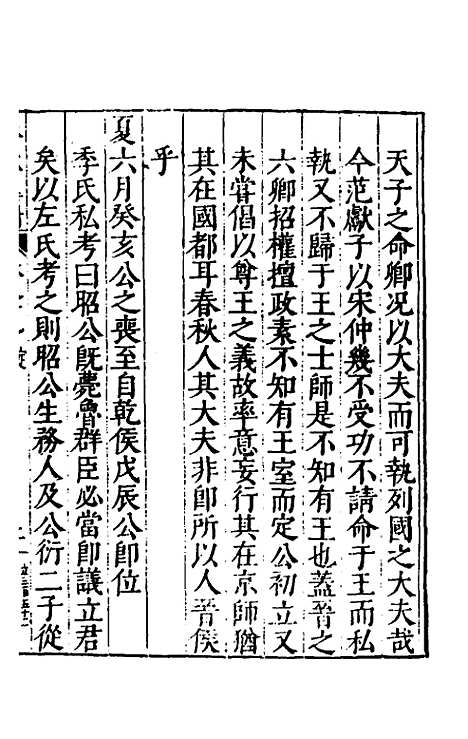 天子之命卿况以大夫而可執列國之大夫哉
今范獻子以宋仲幾不受功不請命于王而私
執又不歸于王之士師是不知有王也蓋晉之
六卿招權擅政素不知有王室而定公初立又
未嘗倡以尊王之義故率意妄行其在京師猶
其在國都耳春秋人其大夫非卽所以人晉侯
乎
夏六月癸亥公之喪至自乾侯戊辰公卽位
季氏私考曰昭公旣薨魯群臣必當卽議立君
矣以左氏考之則昭公生務人及公衍二子從